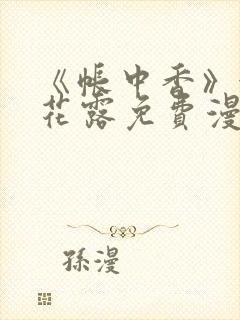 《帐中香》
花露免費漫
孫漫